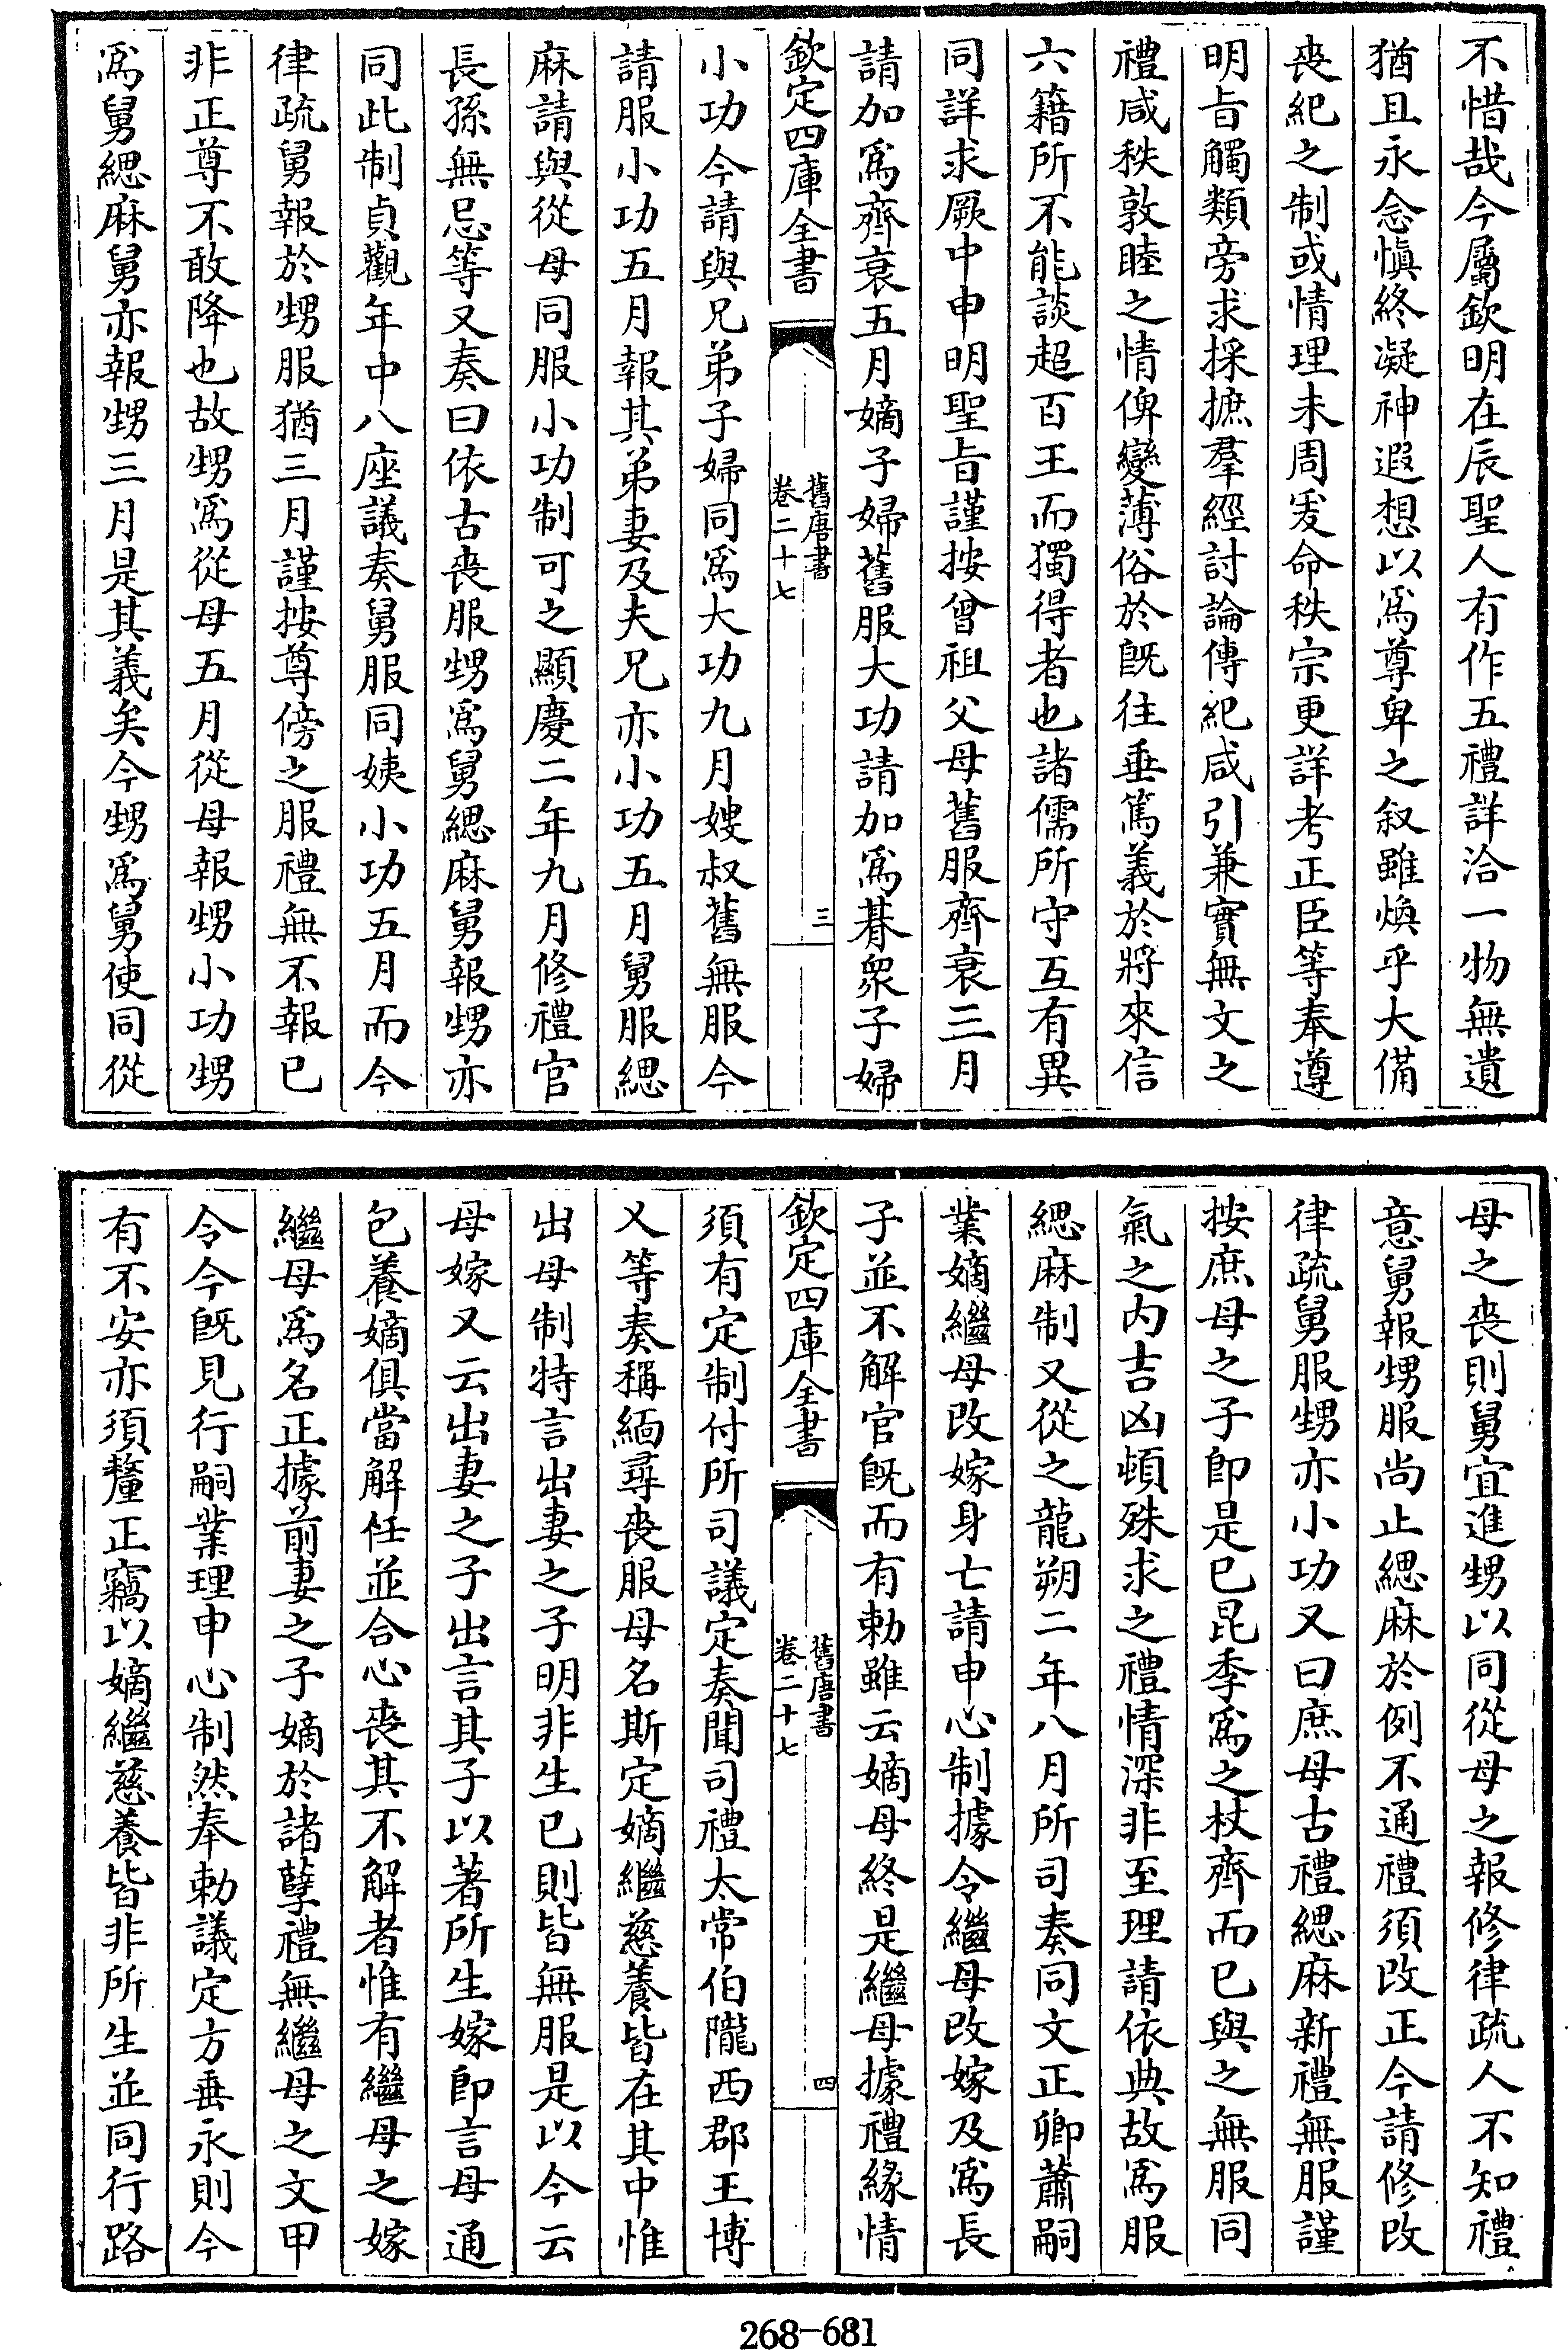 不惜哉今屬欽明在辰聖人有作五禮詳洽一物無遺
猶且永念愼終凝神遐想以爲尊卑之叙雖煥乎大備
喪紀之制或情理未周爰命秩宗更詳考正臣等奉遵
明旨觸類旁求採摭羣經討論傳紀咸引兼實無文之
禮咸秩敦睦之情俾變薄俗於旣往垂篤義於將來信
六籍所不能談超百王而獨得者也諸儒所守互有異
同詳求厥中申明聖旨謹按曾祖父母舊服齊衰三月
請加爲齊衰五月嫡子婦舊服大功請加爲朞衆子婦
欽定四庫全書
舊唐書
卷二十七
三
小功今請與兄弟子婦同爲大功九月嫂叔舊無服今
請服小功五月報其弟妻及夫兄亦小功五月舅服緦
麻請與從母同服小功制可之顯慶二年九月修禮官
長孫無忌等又奏曰依古喪服甥爲舅緦麻舅報甥亦
同此制貞觀年中八座議奏舅服同姨小功五月而今
律疏舅報於甥服猶三月謹按尊傍之服禮無不報已
非正尊不敢降也故甥爲從母五月從母報甥小功甥
爲舅緦麻舅亦報甥三月是其義矣今甥爲舅使同從
母之喪則舅宜進甥以同從母之報修律疏人不知禮
意舅報甥服尚止緦麻於例不通禮須改正今請修改
律疏舅服甥亦小功又曰庶母古禮緦麻新禮無服謹
按庶母之子卽是已昆季爲之杖齊而已與之無服同
氣之内吉凶頓殊求之禮情深非至理請依典故爲服
緦麻制又從之龍朔二年八月所司奏同文正卿蕭嗣
業嫡繼母改嫁身亡請申心制據令繼母改嫁及爲長
子並不解官旣而有勅雖云嫡母終是繼母據禮緣情
欽定四庫全書
舊唐書
卷二十七
四
須有定制付所司議定奏聞司禮太常伯隴西郡王博
乂等奏稱緬尋喪服母名斯定嫡繼慈養皆在其中惟
出母制特言出妻之子明非生已則皆無服是以今云
母嫁又云出妻之子出言其子以著所生嫁卽言母通
包養嫡俱當解任並合心喪其不解者惟有繼母之嫁
繼母爲名正據前妻之子嫡於諸孽禮無繼母之文甲
令今旣見行嗣業理申心制然奉勅議定方垂永則今
有不安亦須釐正竊以嫡繼慈養皆非所生並同行路
268-681